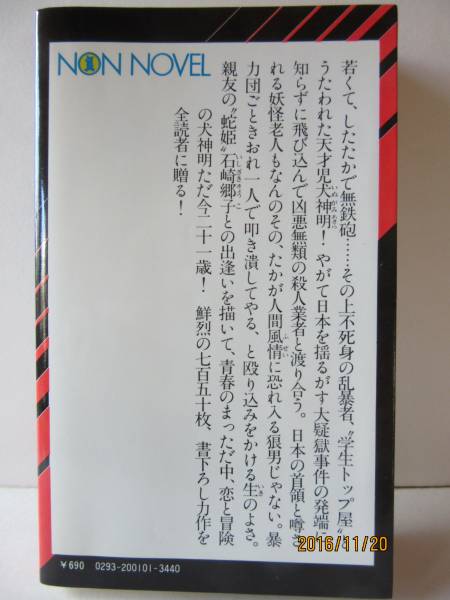 NON NOVEL
若くて、したたかで無鉄砲……その上不死身の乱暴者、〝学生トップ屋〟
うたわれた天才児犬神明！ やがて日本を揺るがす大疑獄事件の発端
知らずに飛び込んで凶悪無類の殺人業者と渡り合う。日本の首領と噂さ
れる妖怪老人もなんのその、たかが人間風情に恐れ入る狼男じゃない。暴
力団ごときおれ一人で叩き潰してやる、と殴り込みをかける生のよさ。
親友の〝蛇姫〟石崎郷子との出逢いを描いて、青春のまっただ中、恋と冒険
の犬神明ただ今二十一歳！ 鮮烈の七百五十枚、書下ろし力作を
全読者に贈る！
￥690 0293-200101-3440
2016/11/20